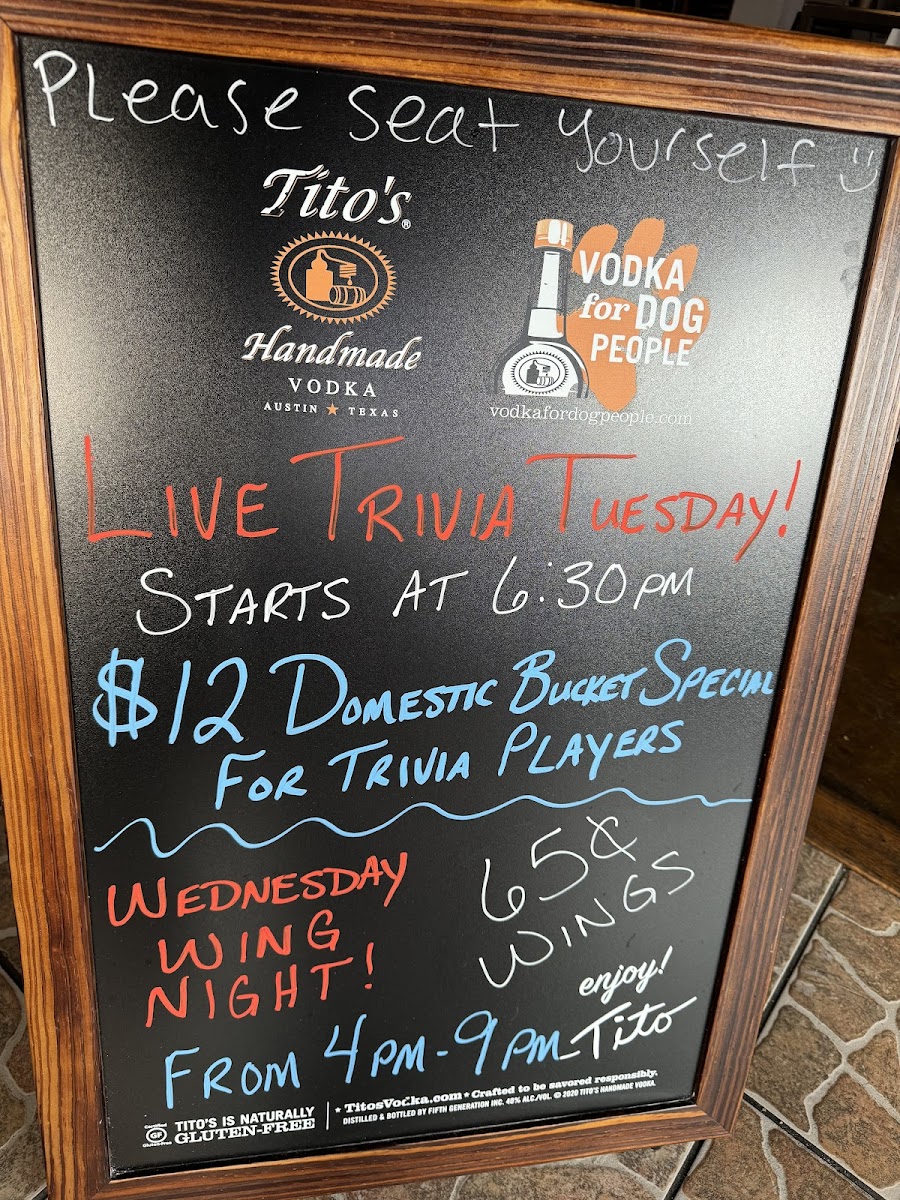 PLease Seat Yourself :)
Tito's®
Handmade
VODKA
AUSTIN ★ TEXAS
VODKA
for DOG
PEOPLE
vodkafordogpeople.com
LIVE TRIVIA TUESDAY!
STARTS AT 6:30PM
$12 DOMESTIC BUCKET SPECIAL
FOR TRIVIA PLAYERS
WEDNESDAY
WING
NIGHT!
65¢
WINGS
enjoy!
Tito
FROM 4PM-9PM
Certified
GF
Gluten-Free
TITO'S IS NATURALLY
GLUTEN-FREE
* TitosVodka.com * Crafted to be savored responsibly.
DISTILLED & BOTTLED BY FIFTH GENERATION INC. 40% ALC./VOL. © 2020 TITO'S HANDMADE VODKA.